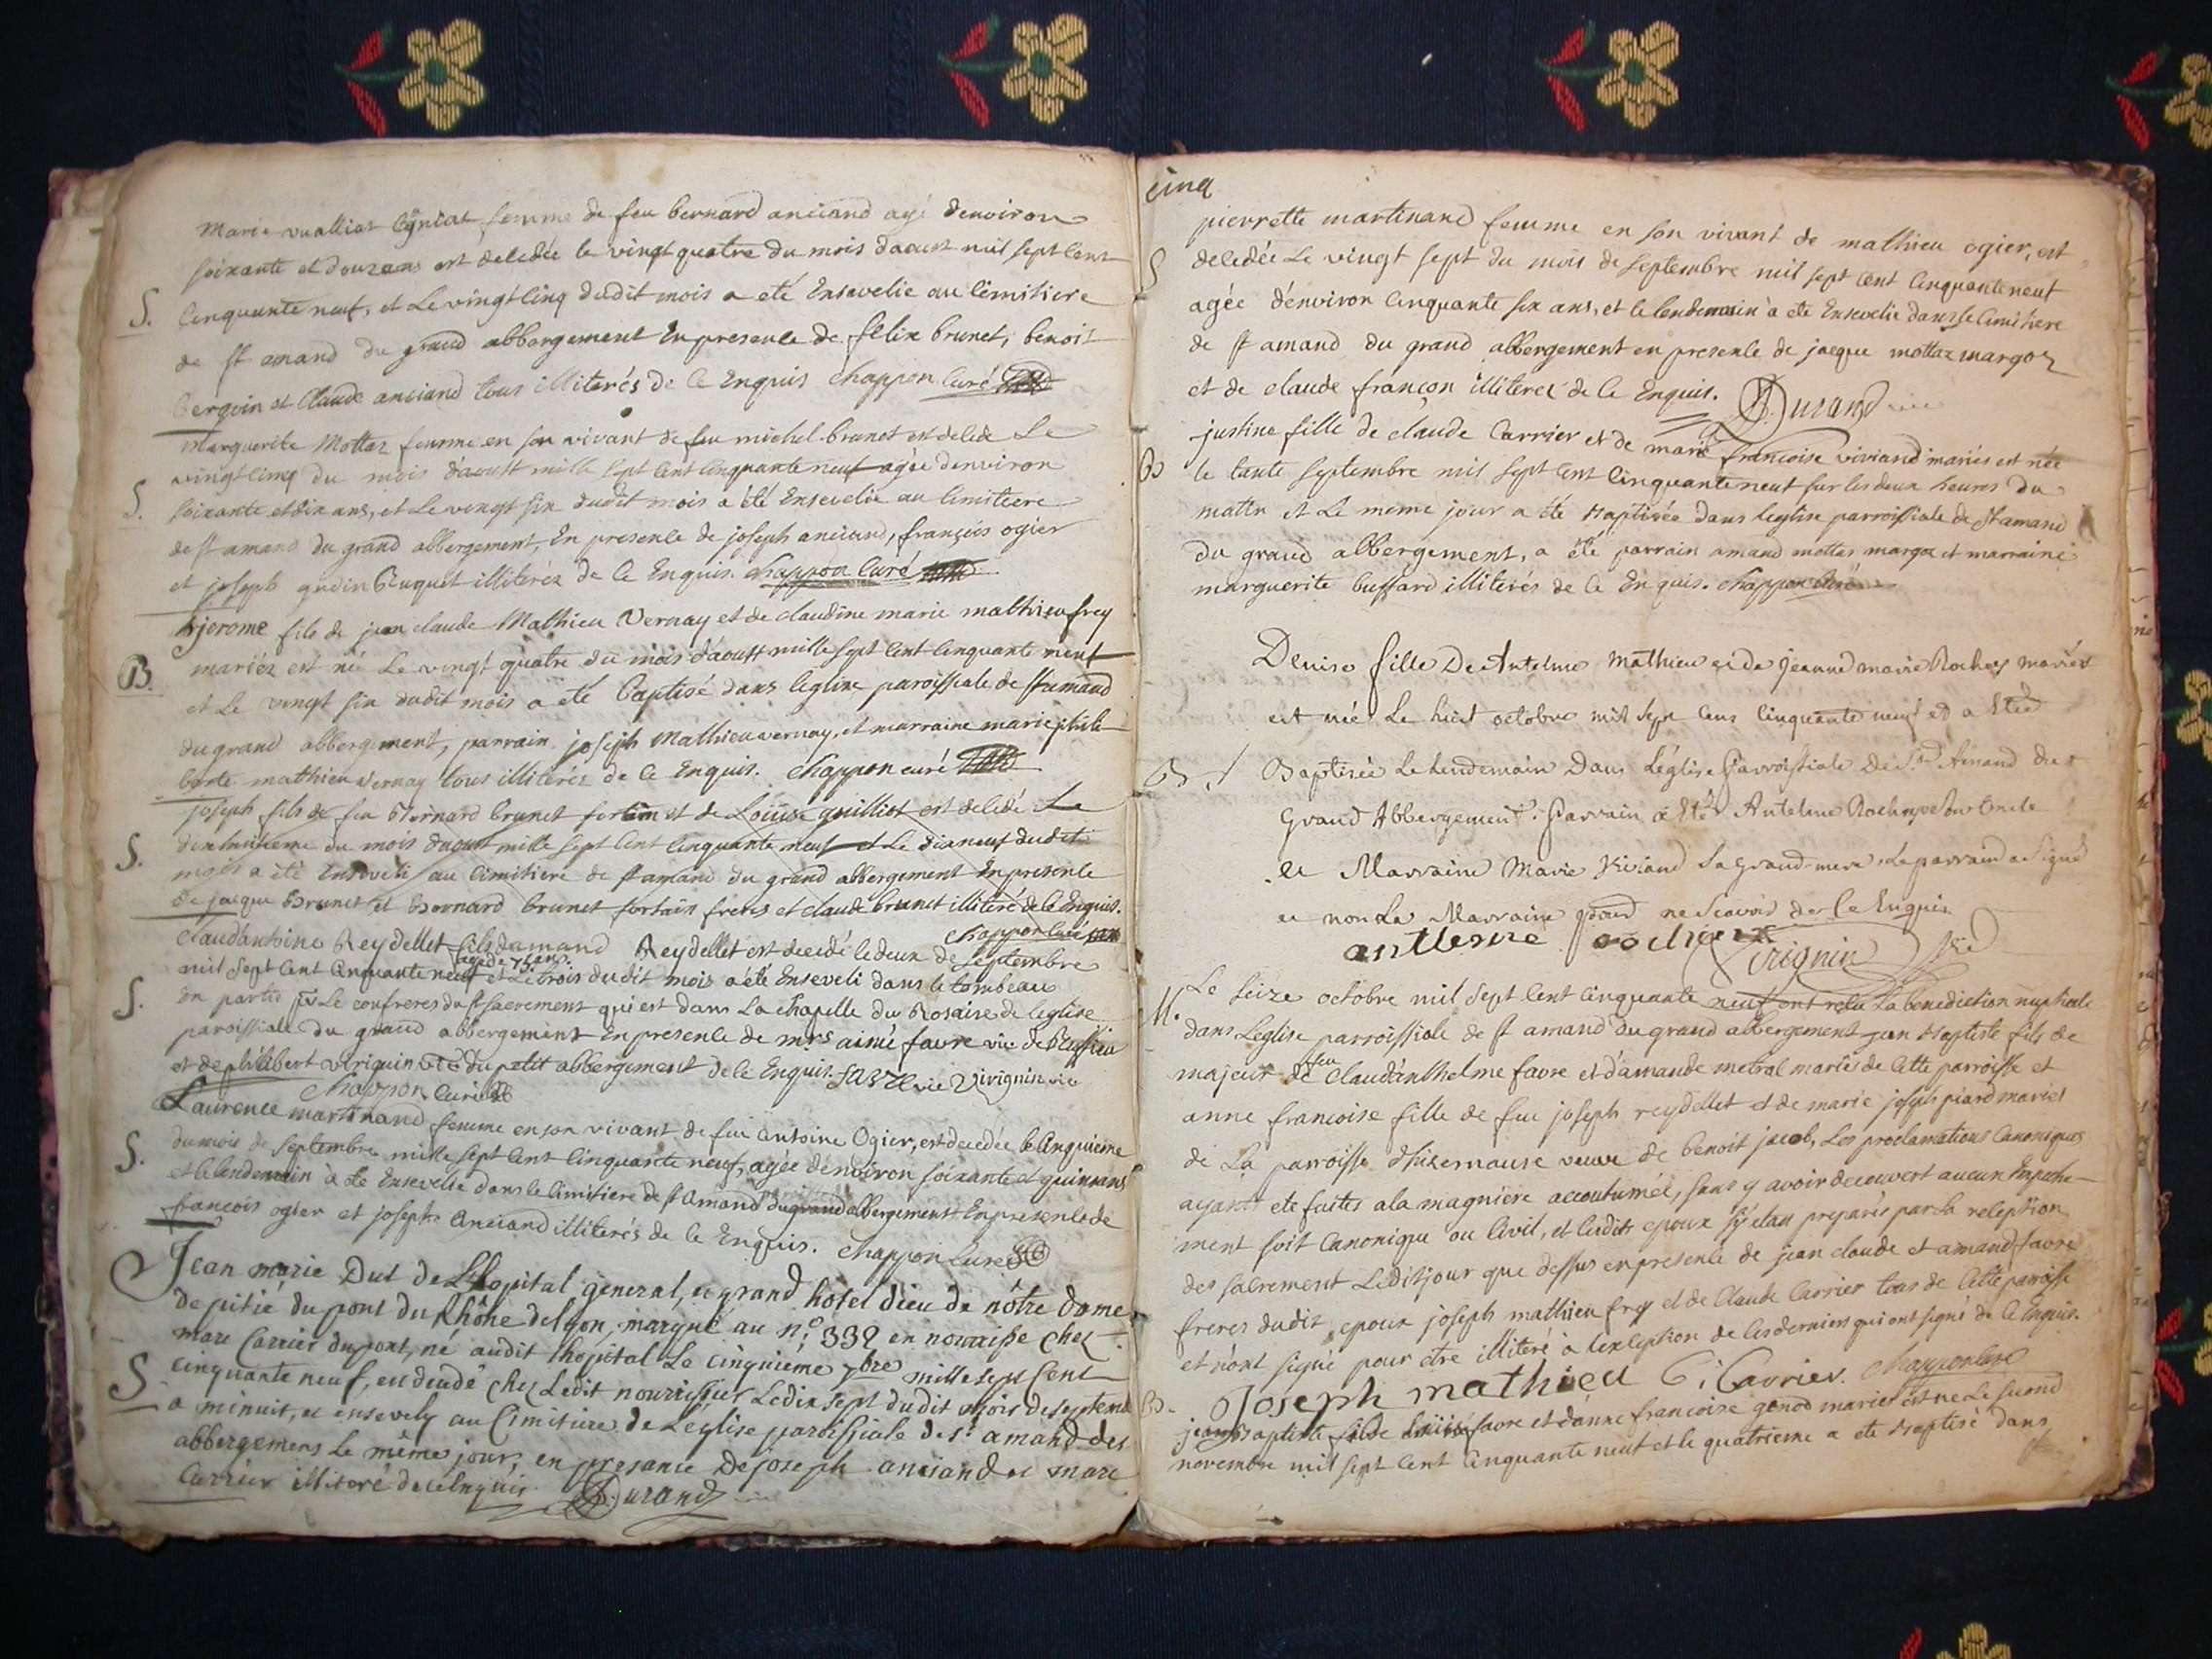 Marie vualliat femme de feu bernard anciand agé denviron
soixante et douze ans est decedée le vingt quatre du mois daoust mil sept cent
S. Cinquante neuf, et Le vingt cinq dudit mois a eté Ensevelie au Cimitiere
de st amand du grand abbergement En presence de felix brunet, benoit
bergoin et Claude anciand tous illiterés de ce Enquis Chappon Curé
Marguerite Mottaz femme en son vivant de feu michel brunet est decede Le
vingt cinq du mois d'aoust mille sept cent cinquante neuf agée denviron
S. soixante et dix ans, et Le vingt six dudit mois a été Ensevelie au Cimitiere
de st amand du grand abbergement, En presence de joseph anciand, françois ogier
et joseph gudin illiterez de ce Enquis. Chappon Curé
jerome fils de jean claude Mathieu Vernay et de claudine marie mathieu frey
B. mariéz est né Le vingt quatre du mois d'aoust mille sept cent cinquante neuf
et Le vingt six dudit mois a été baptisé dans leglise paroissiale de st amand
du grand abbergement, parrain joseph Mathieu vernay, et marraine marie phili
berte mathieu vernay tous illiterés de ce Enquis. Chappon curé
joseph fils de feu bernard brunet fortin et de Loüise guilliot est decedé Le
S. dixhuitieme du mois daoust mille sept cent cinquante neuf et Le dixneuf dudit
mois a été Enseveli au Cimitiere de st amand du grand abbergement En presence
de jacque Brunet et Bernard brunet fortain freres et claude brunet illiteré de ce Enquis.
Chappon curé
Claud'antoine Reydellet fils damand Reydellet est decedé le deux de septembre
agé de 75 ans.
mil sept cent cinquante neuf et Le trois dudit mois a été Enseveli dans le tombeau
S. Le confreres du st sacrement qui est dans La chapelle du Rosaire de leglise
paroissiale du grand abbergement En presence de mrs aimé favre vic de
et de philibert virignin du petit abbergement de ce Enquis. favre vic Virignin vic
Chappon Curé
Laurence martinand femme en son vivant de feu antoine Ogier, est decedée le Cinquieme
S. du mois de septembre mille sept cent cinquante neuf, agée denviron soixante et quinzans
et le lendemain à été Ensevelie dans le Cimitiere de st Amand du grand abbergement En presence de
françois ogier et joseph Anciand illiterés de ce Enquis. Chappon Curé
Jean marie Dut de Lhopital general, et grand hotel dieu de nôtre dame
de pitié du pont du Rhône de lyon, marqué au n° 332 en nourisse chez
marc Carrier dupont, né audit hopital Le cinquieme 7bre mille sept cent
S. cinquante neuf, est decedé chez Ledit nourrissier Le dix sept dudit mois de septembre
a minuit, et ensevely au Cimitiere de L'eglise paroissiale de st amand des
abbergemens Le même jour, en presance de joseph anciand et marc
Carrier illiteré de ce Enquis. Durand
cinq
pierrette martinand femme en son vivant de mathieu ogier, est
S decedée Le vingt sept du mois de septembre mil sept cent cinquante neuf
agée d'environ cinquante six ans, et le lendemain à été Ensevelie dans le Cimitiere
de st amand du grand abbergement en presence de jacque mottaz margoz
et de claude françon illiterez de ce Enquis. Durand
justine fille de claude Carrier et de marie francoise viviand mariés est née
B le trente septembre mil sept cent cinquante neuf sur les deux heures du
matin et Le meme jour a été Baptisée dans leglise parroissiale de st amand
du grand abbergement, a été parrain amand mottas margoz et marraine
marguerite buffard illiterés de ce Enquis. Chappon Curé
Denise fille De Antelme Mathieu et de jeanne marie Rochex mariés
est née Le huit octobre mil sept cens cinquante neuf et a Eté
B Baptisée Le lendemain Dans L'église Parroissiale De St Amand du
Grand Abbergement. Parrain a Eté Antelme Rochex son oncle
et Marraine Marie Viviand sa grand mere, Le parrain a signé
et non La Marraine pour ne scavoir de ce Enquis
antlesme rochex Virignin vic
Le seize octobre mil sept cent cinquante neuf ont reçu La benediction nuptiale
M. dans Leglise parroissiale de st amand du grand abbergement jean Baptiste fils de
majeur de feu Claud'anthelme favre et d'amande metral mariés de cette parroisse et
anne francoise fille de feu joseph reydellet et de marie joseph piard mariés
de La parroisse d'hisernause veuve de benoit jacob, Les proclamations Canoniques
ayant eté faites a la magniere accoutumée, sans y avoir decouvert aucun Empeche-
ment soit Canonique ou Civil, et lesdits epoux s'y etant preparés par La reception
des sacrement Ledit jour que dessus en presence de jean claude et amand favre
freres dudit epoux joseph mathieu frey et de Claude Carrier tous de cette parroisse
et n'ont signé pour etre illiteré à lexception de les derniers qui ont signé de ce Enquis.
Joseph mathieu C. Carrier. Chappon Curé
B. jean Baptiste fils de favre et d'anne francoise genod mariés est né Le second
novembre mil sept cent cinquante neuf et le quatrieme a eté Baptisé dans